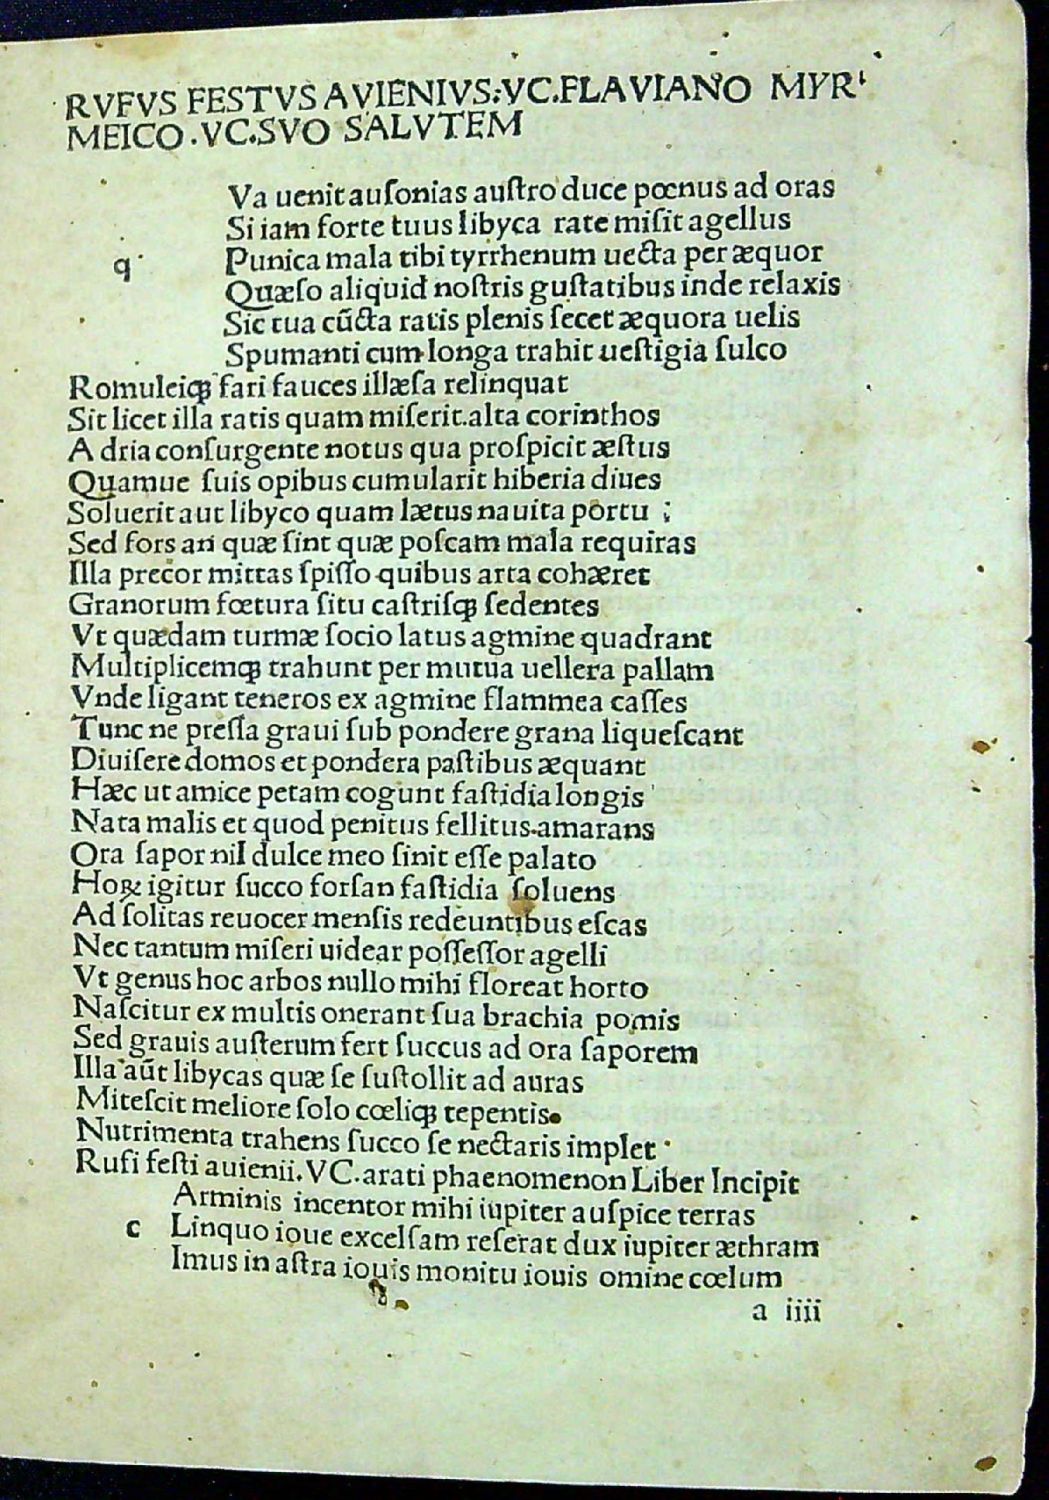 1
RVFVS FESTVS AVIENIVS.VC.FLAVIANO MYR
MEICO.VC.SVO SALVTEM
Va uenit auſonias auſtro duce pœnus ad oras
Si iam forte tuus libyca rate miſit agellus
q Punica mala tibi tyrrhenum uecta per æquor
Quæſo aliquid noſtris guſtatibus inde relaxis
Sic tua cũcta ratis plenis ſecet æquora uelis
Spumanti cum longa trahit ueſtigia ſulco
Romuleiqꝫ fari fauces illæſa relinquat
Sit licet illa ratis quam miſerit.alta corinthos
A dria conſurgente notus qua proſpicit æſtus
Quamue ſuis opibus cumularit hiberia diues
Soluerit aut libyco quam lætus nauita portu ;
Sed fors an quæ ſint quæ poſcam mala requiras
Illa precor mittas ſpiſſo quibus arta cohæret
Granorum fœtura ſitu caſtriſqꝫ ſedentes
Vt quædam turmæ ſocio latus agmine quadrant
Multiplicemqꝫ trahunt per mutua uellera pallam
Vnde ligant teneros ex agmine flammea caſſes
Tunc ne preſſa graui ſub pondere grana liqueſcant
Diuiſere domos et pondera paſtibus æquant
Hæc ut amice petam cogunt faſtidia longis
Nata malis et quod penitus fellitus amarans
Ora ſapor nil dulce meo ſinit eſſe palato
Hoꝝ igitur ſucco forſan faſtidia ſoluens
Ad ſolitas reuocer menſis redeuntibus eſcas
Nec tantum miſeri uidear poſſeſſor agelli
Vt genus hoc arbos nullo mihi floreat horto
Naſcitur ex multis onerant ſua brachia pomis
Sed grauis auſterum fert ſuccus ad ora ſaporem
Illa aũt libycas quæ ſe ſuſtollit ad auras
Miteſcit meliore ſolo cœliqꝫ tepentis.
Nutrimenta trahens ſucco ſe nectaris implet
Rufi feſti auienii.VC.arati phaenomenon Liber Incipit
Arminis incentor mihi iupiter auſpice terras
c Linquo ioue excelſam reſerat dux iupiter æthram
Imus in aſtra iouis monitu iouis omine cœlum
a iiii